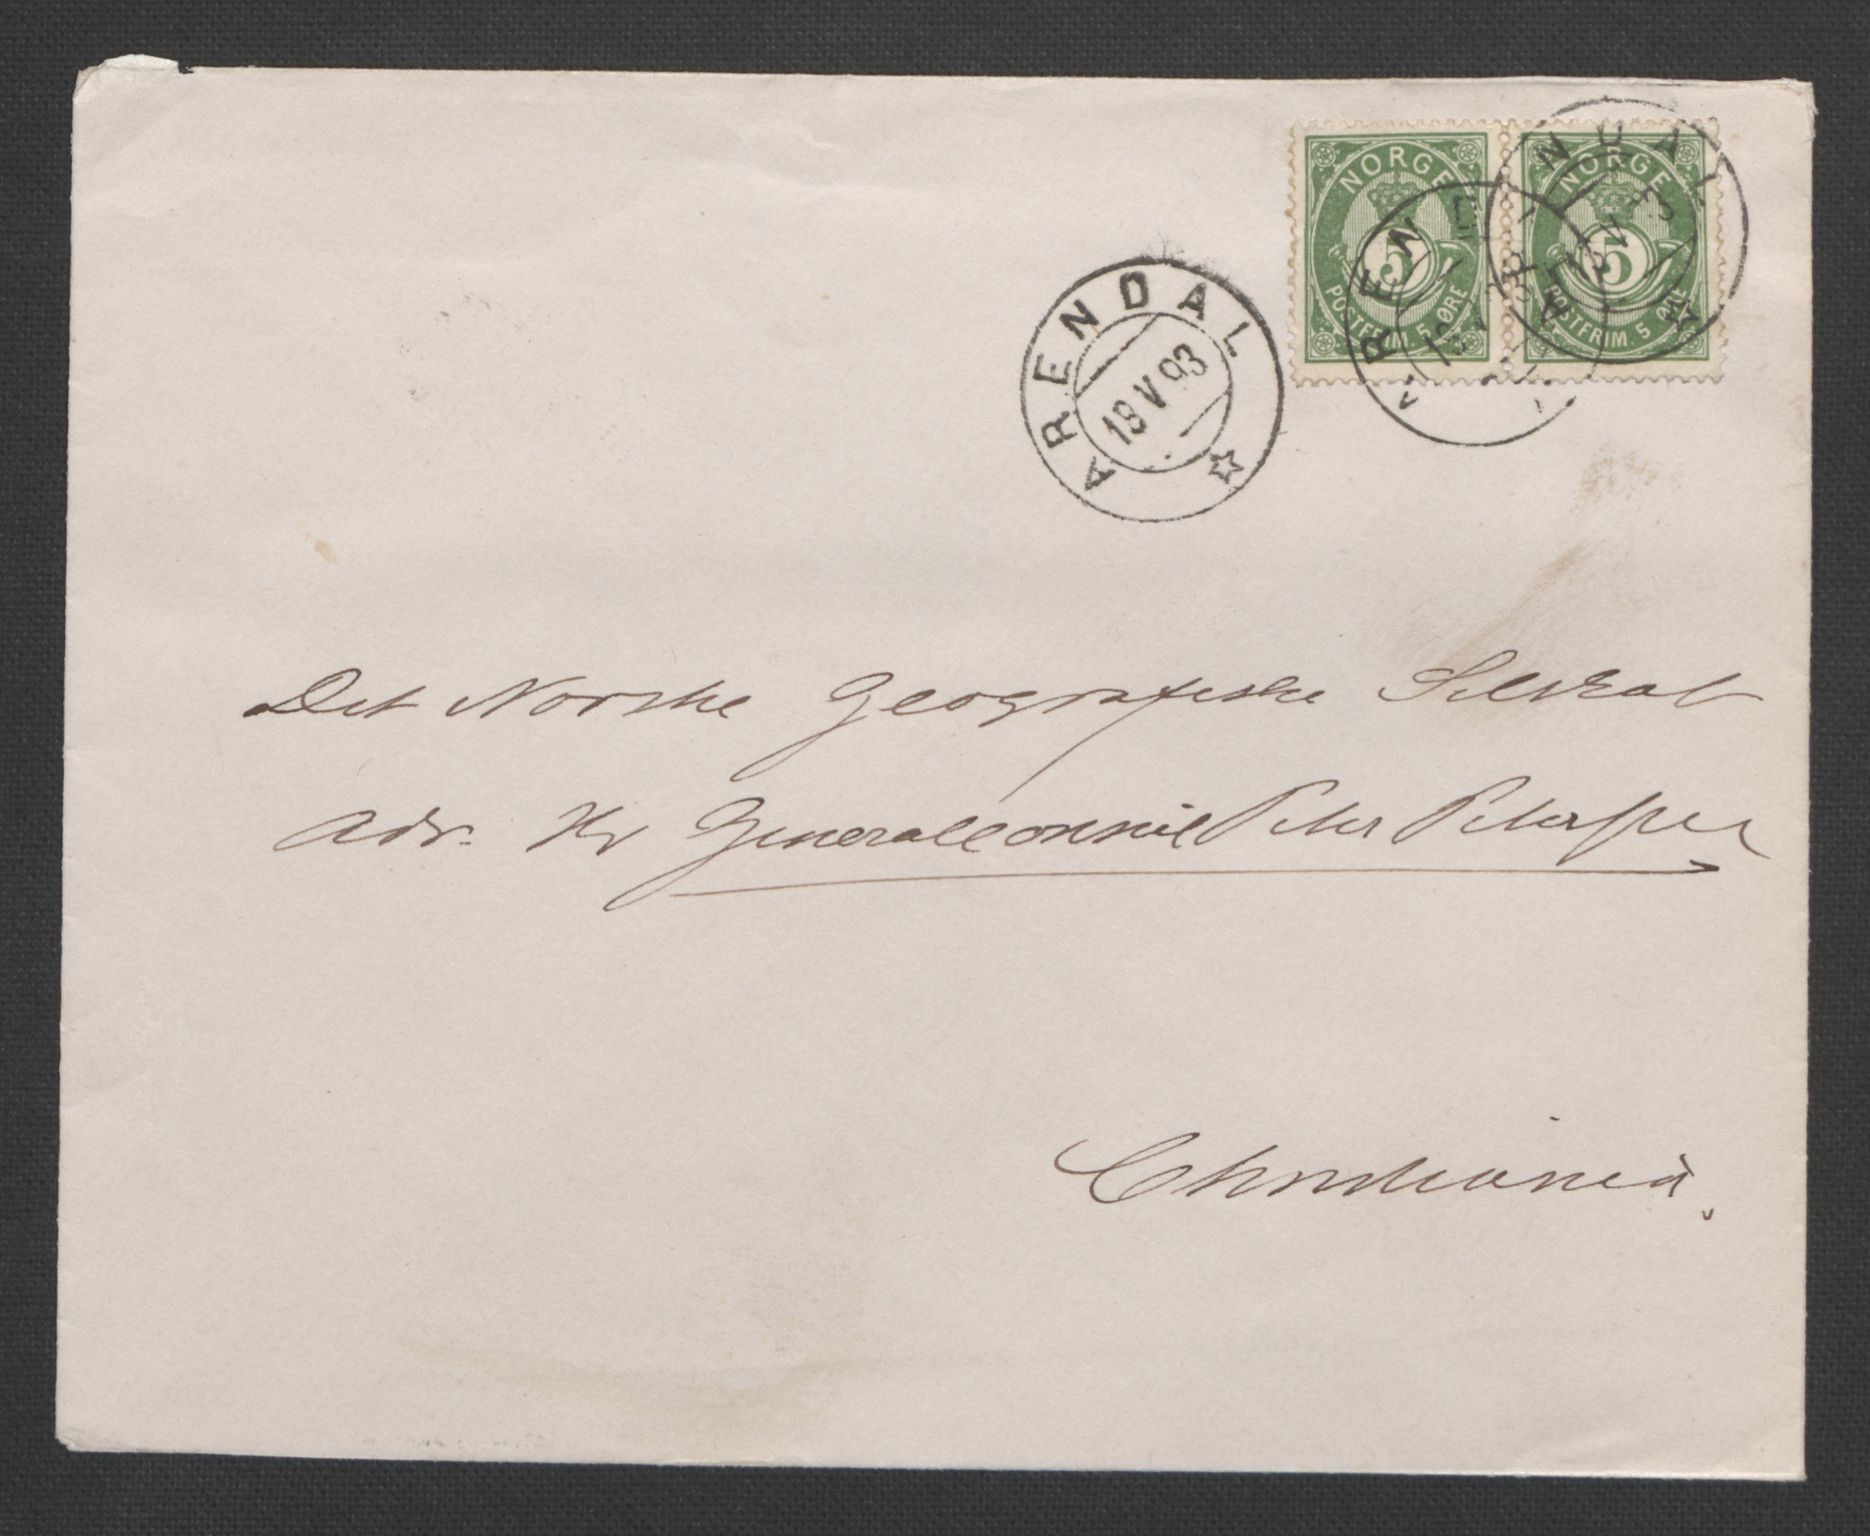 NORGE NORGE
5 5
POSTFRIM. 5 ØRE POSTFRIM. 5 ØRE
ARENDAL
18 V 93
ARENDAL
ARENDAL
Det Norske Geografiske Selskab
Adr. Hr Generalconsul Peter Petersen
Christiania.